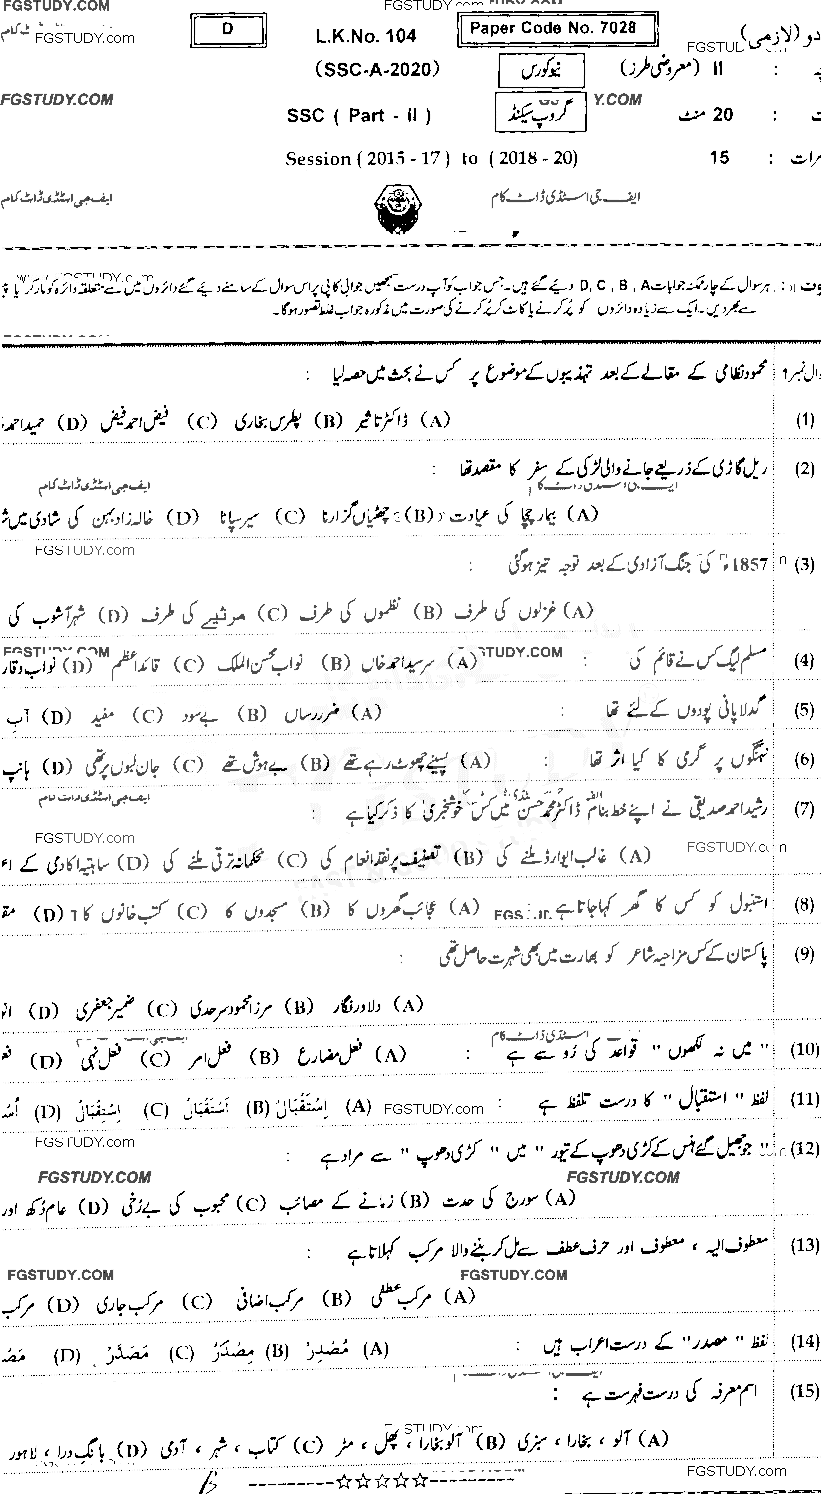 FGSTUDY.COM FGSTUDY.com
FGSTUDY.com D L.K.No. 104 Paper Code No. 7028 دو (لازمی)
(SSC-A-2020) نیو کورس II (معروضی طرز) :
FGSTUDY.COM SSC ( Part - II ) گروپ سیکنڈ Y.COM 20 منٹ :
Session ( 2015 - 17 ) to ( 2018 - 20) 15 :
ایف جی اسٹڈی ڈاٹ کام ایف جی اسٹڈی ڈاٹ کام
ہر سوال کے چار ممکنہ جوابات D, C , B , A دیئے گئے ہیں ۔ جس جواب کو آپ درست سمجھیں جوابی کاپی پر اس سوال کے سامنے دیئے گئے دائروں میں سے متعلقہ دائرہ کو مارکر یا
سے بھر دیں ۔ ایک سے زیادہ دائروں کو پُر کرنے یا کاٹ کر پُر کرنے کی صورت میں مذکورہ جواب غلط تصور ہوگا۔
محمود نظامی کے مقالے کے بعد تہذیبوں کے موضوع پر کس نے بحث میں حصہ لیا :
(1) (A) ڈاکٹر تاثیر (B) پطرس بخاری (C) فیض احمد فیض (D) حمید احمد
(2) ریل گاڑی کے ذریعے جانے والی لڑکی کے سفر کا مقصد تھا :
ایف جی اسٹڈی ڈاٹ کام
(A) بیمار چچا کی عیادت (B) چھٹیاں گزارنا (C) سیر سپاٹا (D) خالہ زاد بہن کی شادی میں
FGSTUDY.com
(3) 1857ء کی جنگ آزادی کے بعد توجہ تیز ہو گئی :
(A) غزلوں کی طرف (B) نظموں کی طرف (C) مرثیے کی طرف (D) شہر آشوب کی
(4) مسلم لیگ کس نے قائم کی : (A) سرسید احمد خاں (B) نواب محسن الملک (C) قائد اعظم (D) نواب وقار
(5) گدلا پانی پودوں کے لئے تھا : (A) ضرر رساں (B) بے سود (C) مفید (D) آب
(6) نہنگوں پر گرمی کا کیا اثر تھا : (A) پسینے چھوٹ رہے تھے (B) بے ہوش تھے (C) جان لبوں پر تھی (D) ہانپ
(7) رشید احمد صدیقی نے اپنے خط بنام ڈاکٹر محمد حسن میں کس خوشخبری کا ذکر کیا ہے :
ایف جی اسٹڈی ڈاٹ کام
FGSTUDY.com
(A) غالب ایوارڈ ملنے کی (B) تصنیف پر نقد انعام کی (C) محکمانہ ترقی ملنے کی (D) ساہتیہ اکادمی کے
(8) استنبول کو کس کا گھر کہا جاتا ہے (A) عجائب گھروں کا (B) مسجدوں کا (C) کتب خانوں کا (D)
(9) پاکستان کے کس مزاحیہ شاعر کو بھارت میں بھی شہرت حاصل تھی :
(A) دلاور نگار (B) مرزا محمود سرحدی (C) ضمیر جعفری (D)
(10) " میں نہ لکھوں " قواعد کی رُو سے ہے : (A) فعل مضارع (B) فعل امر (C) فعل نہی (D)
(11) لفظ " استقبال " کا درست تلفظ ہے : FGSTUDY.com (A) اِسْتِقْبَالْ (B) اَسْتَقْبَالْ (C) اِسْتِقْبَالُ (D)
FGSTUDY.com
(12) " جو جھیل گئے ہنس کے کڑی دھوپ کے تیور " میں " کڑی دھوپ " سے مراد ہے :
FGSTUDY.COM FGSTUDY.COM
(A) سورج کی حدت (B) زمانے کے مصائب (C) محبوب کی بے رُخی (D) عام دُکھ اور
(13) معطوف الیہ ، معطوف اور حرف عطف سے مل کر بننے والا مرکب کہلاتا ہے :
FGSTUDY.COM FGSTUDY.COM
(A) مرکب عطفی (B) مرکب اضافی (C) مرکب جاری (D) مرکب
(14) لفظ " مصدر" کے درست اعراب ہیں : (A) مُصْدِرْ (B) مِصْدَرْ (C) مَصْدَرْ (D)
(15) اسم معرفہ کی درست فہرست ہے :
(A) آلو ، بخارا ، سبزی (B) آلو بخارا ، پھل ، مٹر (C) کتاب ، شہر ، آدمی (D) بانگ درا ، لاہور
FGSTUDY.com